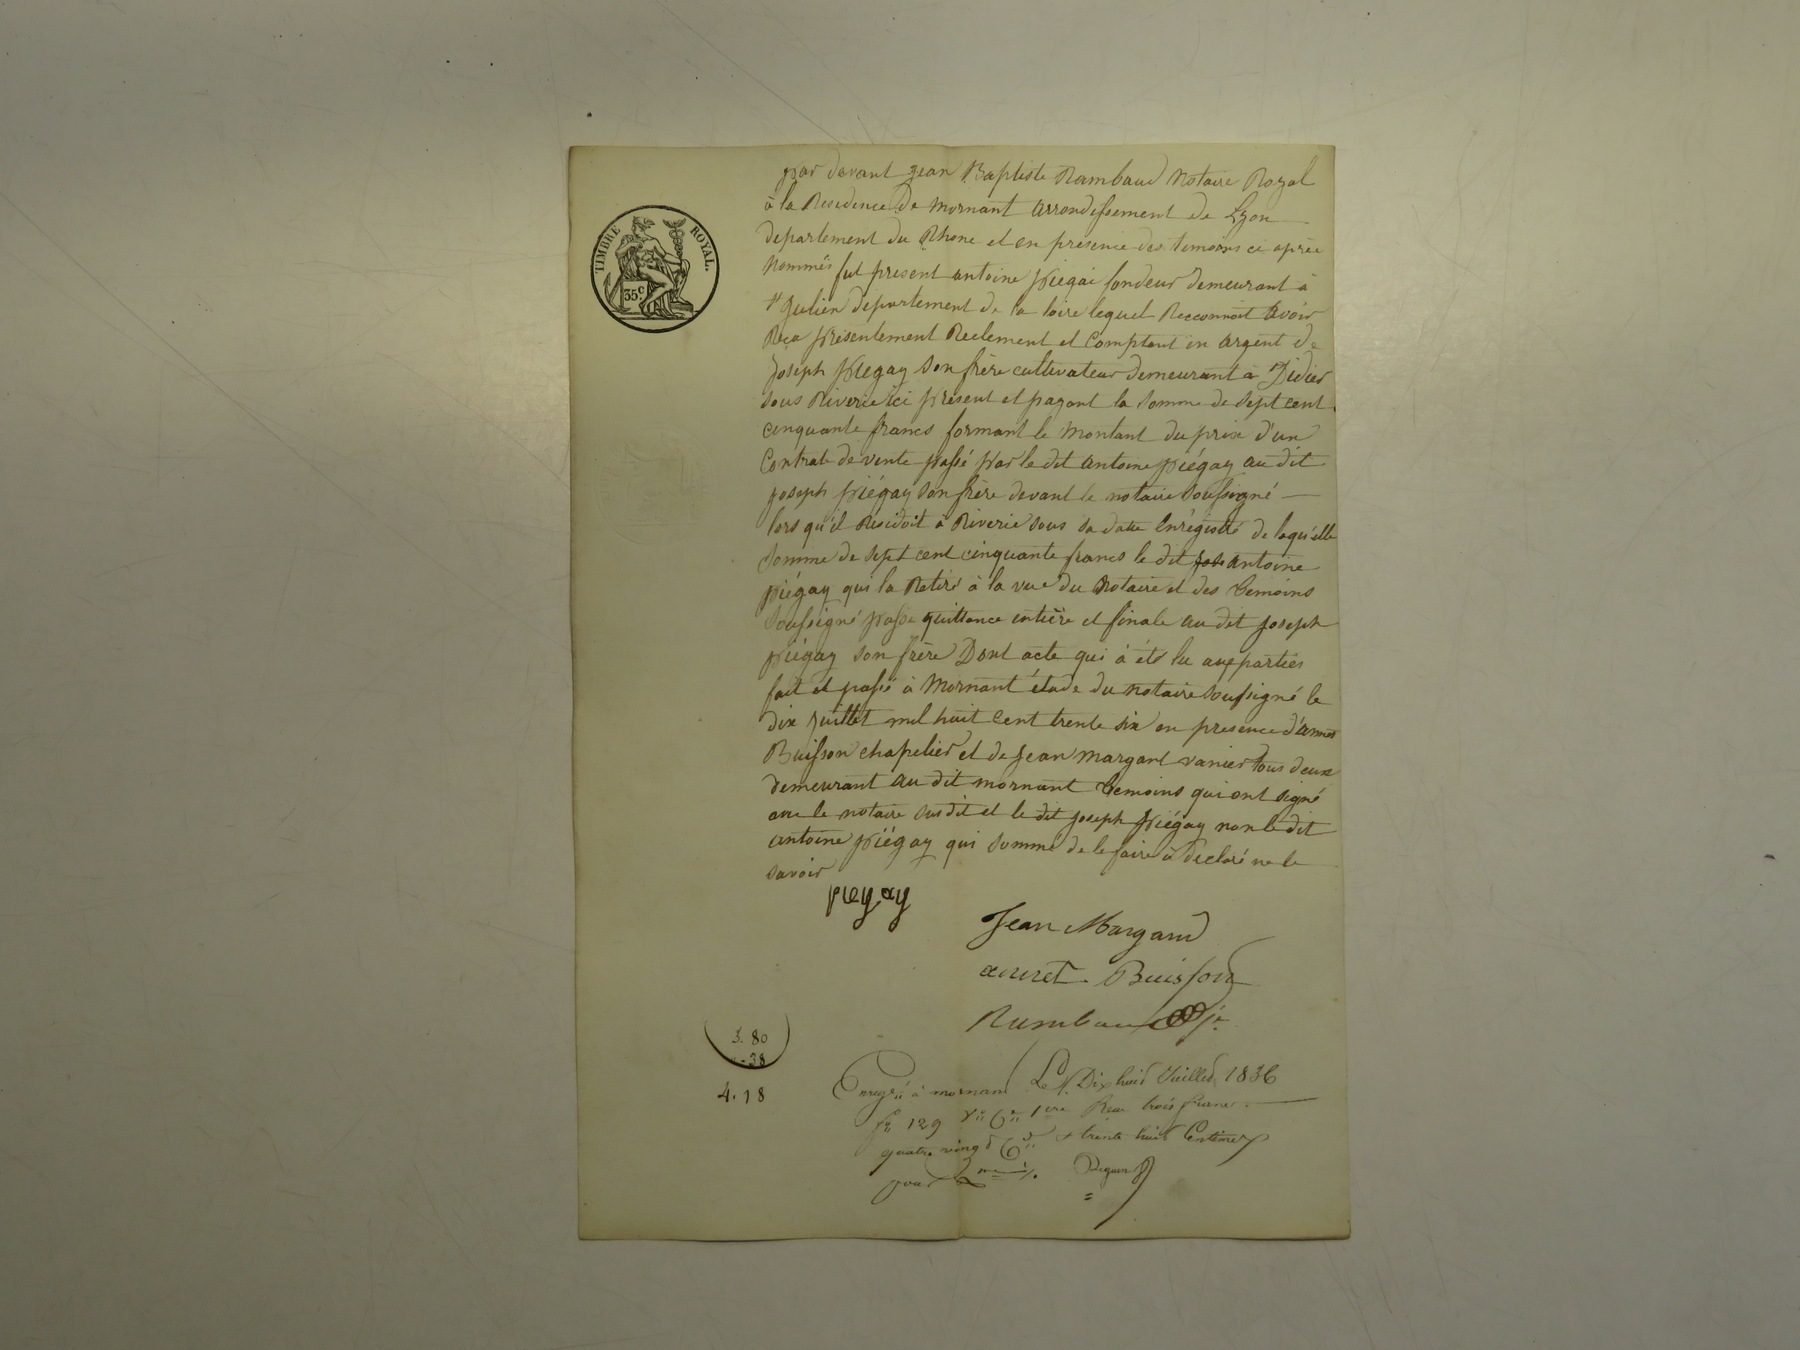 TIMBRE ROYAL.
35c.
par devant jean Baptiste Rambaud Notaire Royal
à la Residence de Mornant arrondissement de Lyon
departement du Rhone et en presence des temoins ci après
Nommés fut present antoine piégai fondeur demeurant à
st julien departement de la loire lequel Recconnoit avoir
Reçu présentement Reelement et comptant en argent de
joseph piegay son frère cultivateur demeurant à st Didier
sous Riverie ici présent et payant la somme de sept cent
cinquante francs formant le montant du prix d'un
Contrat de vente passé par le dit antoine piégay au dit
joseph piégay son frère devant le notaire soussigné
lors qu'il Residoit à Riverie sous sa datte Enrégistré de laqu'elle
somme de sept cent cinquante francs le dit jose antoine
piégay qui la Retiré à la vue du Notaire et des temoins
soussigné passe quittance entière et finale au dit joseph
piégay son frère Dont acte qui à été lu aux parties
fait et passé à Mornant étude du notaire soussigné le
dix juillet mil huit cent trente six en presence d'annet
Buisson chapelier et de jean margant vanier tous deux
demeurant au dit mornant temoins qui ont signé
avec le notaire sus dit et le dit joseph piégay non le dit
antoine piégay qui sommé de le faire à declaré ne le
savoir
piegay
Jean Margand
annet Buisson
Rambaud
3. 80
- 38
4. 18
Enregé à mornant Le Dix huit Juillet 1836
fo 129 vo Ce 1ere Reçu trois francs
quatre vingt Ces + trente huit Centimes
pour Xme